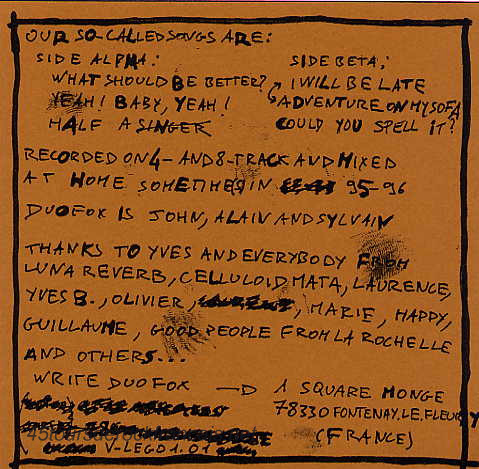 OUR SO-CALLED SONGS ARE:
SIDE ALPHA:
WHAT SHOULD BE BETTER?
YEAH! BABY, YEAH!
HALF A SINGER
SIDE BETA:
I WILL BE LATE
ADVENTURE ON MY SOFA
COULD YOU SPELL IT?
RECORDED ON 4- AND 8-TRACK AND MIXED
AT HOME SOMETIMES IN 95-96
DUOFOX IS JOHN, ALAIN AND SYLVAIN
THANKS TO YVES AND EVERYBODY FROM
LUNA REVERB, CELLULOID MATA, LAURENCE,
YVES B., OLIVIER, MARIE, HAPPY,
GUILLAUME, GOOD PEOPLE FROM LA ROCHELLE
AND OTHERS...
WRITE DUOFOX —D 1 SQUARE MONGE
78330 FONTENAY.LE.FLEURY
(FRANCE)
V-LEGD1.01